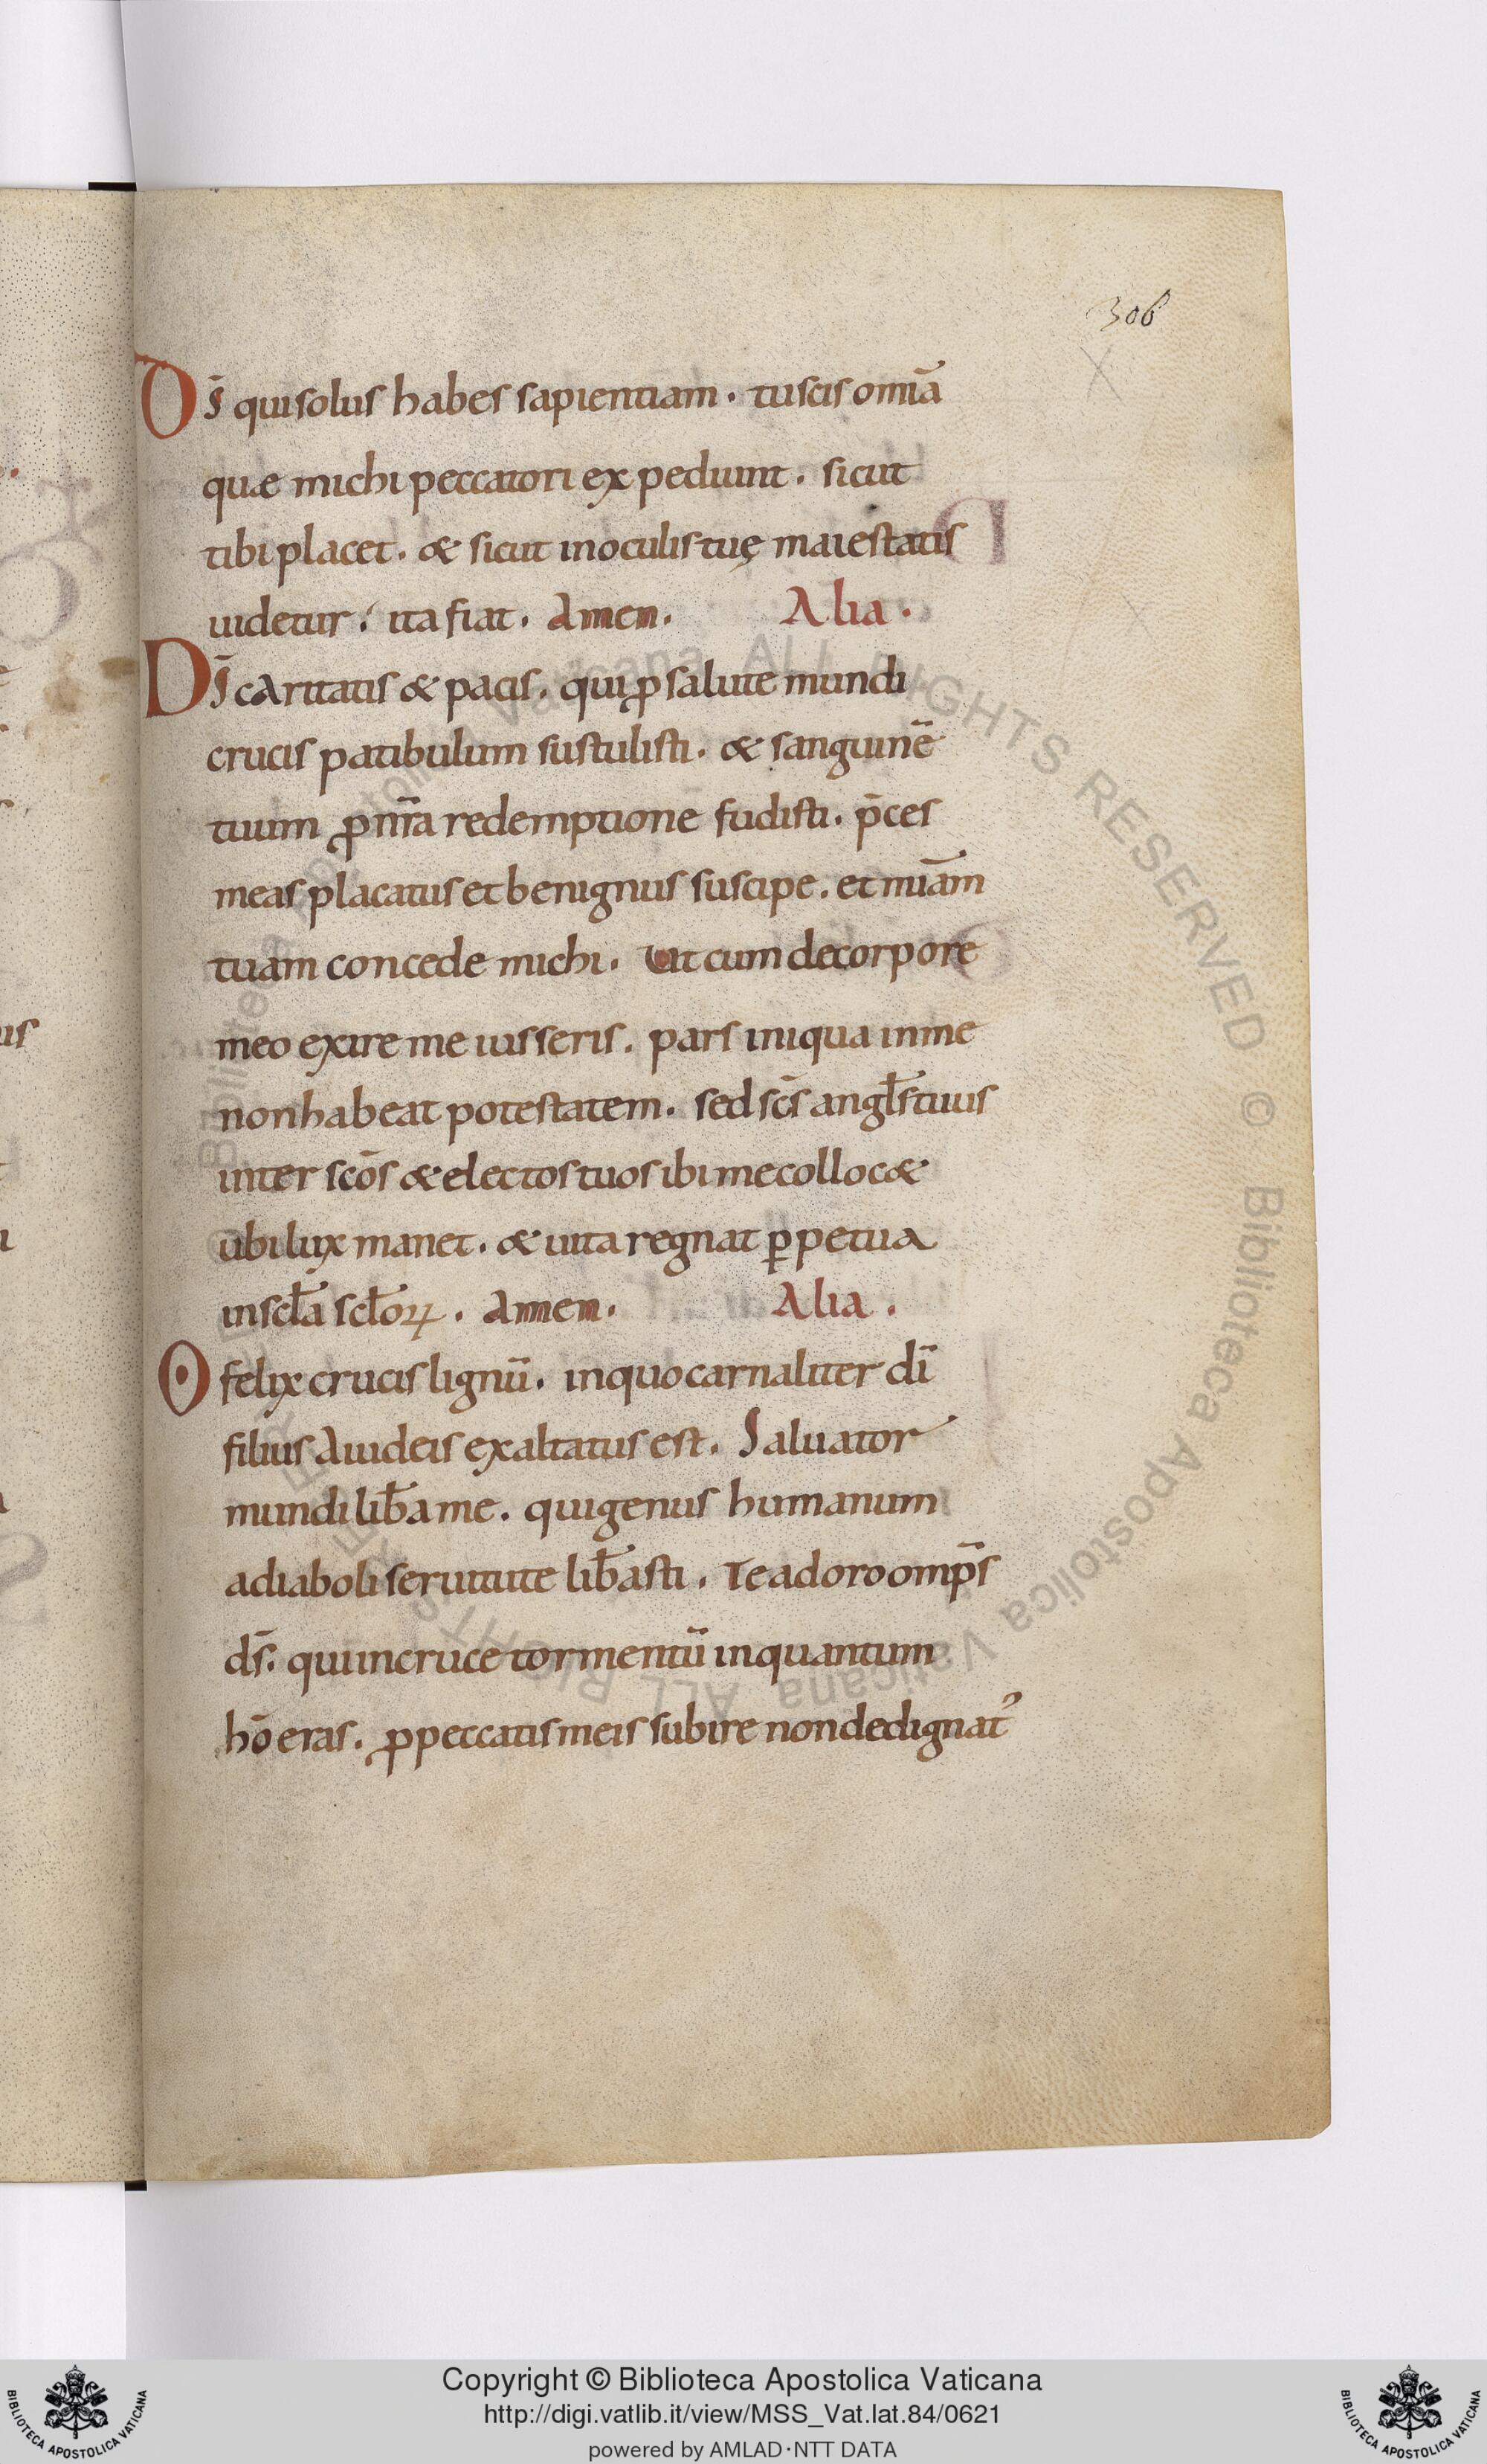 306
Ds̄ qui solus habes sapientiam. tu scis om̄ia
quæ michi peccatori expediunt. sicut
tibi placet. & sicut in oculis tuę maiestatis
uidetur. ita fiat. Amen. Alia.
Ds̄ caritatis & pacis. qui ꝓ salute mundi
crucis patibulum sustulisti. & sanguinē
tuum ꝓ nr̄a redemptione fudisti. p̄ces
meas placatus et benignus suscipe. et mīam
tuam concede michi. Ut cum de corpore
meo exire me iusseris. pars iniqua in me
non habeat potestatem. sed sc̄s angl̄s tuus
inter scōs & electos tuos ibi me colloc&
ubi lux manet. & uita regnat ꝑpetua
in scl̄a scl̄oꝝ. Amen. Alia.
O felix crucis lignū. in quo carnaliter dī
filius a iudeis exaltatus est. Saluator
mundi lib̄a me. qui genus humanum
a diaboli seruitute lib̄asti. Te adoro omp̄s
ds̄. qui in cruce tormentū in quantum
hō eras. ꝓ peccatis meis subire non dedignat᾿
Biblioteca Apostolica Vaticana ALL RIGHTS RESERVED © Biblioteca Apostolica Vaticana ALL RIGHTS RESERVED
BIBLIOTECA APOSTOLICA VATICANA
Copyright © Biblioteca Apostolica Vaticana
http://digi.vatlib.it/view/MSS_Vat.lat.84/0621
powered by AMLAD·NTT DATA
BIBLIOTECA APOSTOLICA VATICANA